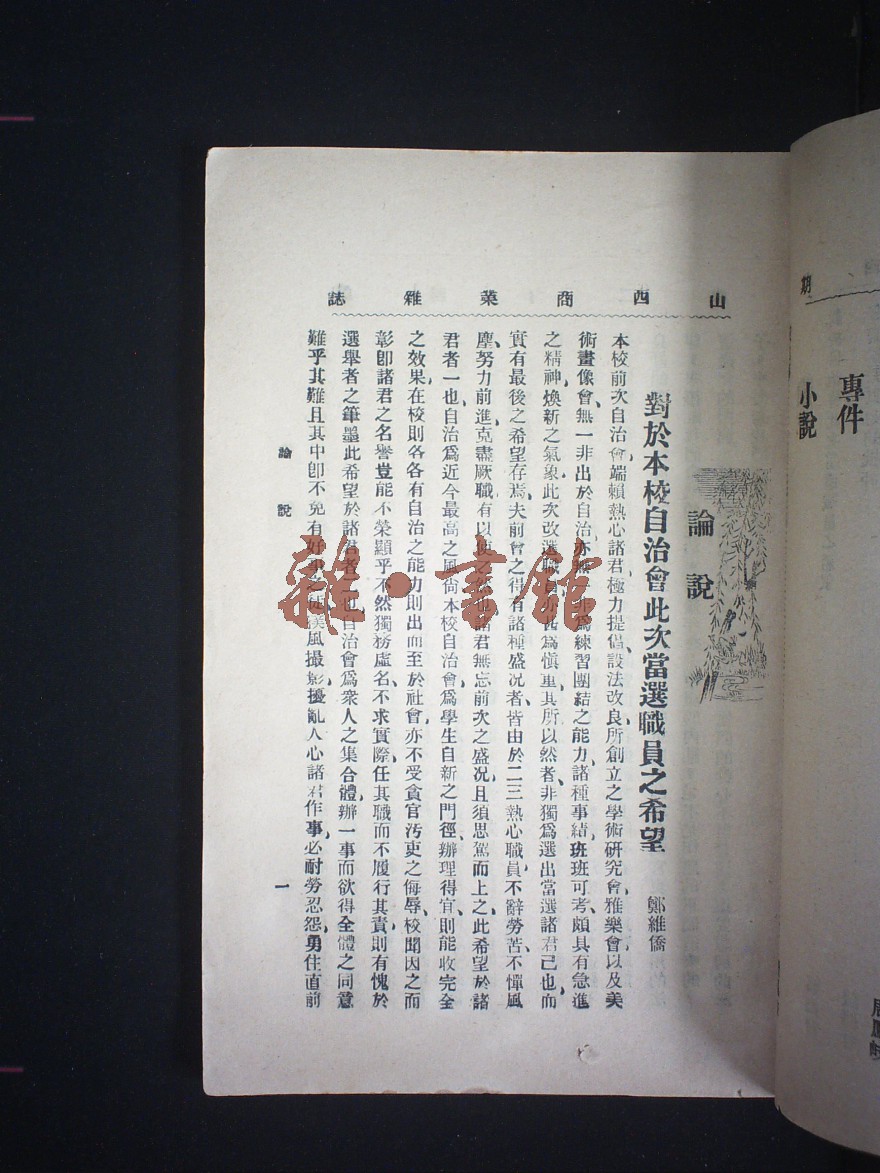 山西商業雜誌
論說
對於本校自治會此次當選職員之希望
鄭維僑
本校前次自治會端賴熱心諸君極力提倡設法改良所創立之學術硏究會、雅樂會以及美
術畫像會、無一非出於自治、亦無一非爲練習團結之能力、諸種事績、班班可考、頗具有急進
之精神、煥新之氣象、此次改選職員亦甚爲愼重、其所以然者、非獨爲選出當選諸君已也、而
實有最後之希望存焉、夫前會之得有諸種盛况者、皆由於二三熱心職員、不辭勞苦、不憚風
塵、努力前進、克盡厥職、有以使之然也、諸君無忘前次之盛况、且須思駕而上之、此希望於諸
君者一也、自治爲近今最高之風尙、本校自治會、爲學生自新之門徑、辦理得宜、則能收完全
之效果、在校則各各有自治之能力、則出而至於社會、亦不受貪官汚吏之侮辱、校聞因之而
彰、卽諸君之名譽、豈能不榮顯乎、不然獨務虛名、不求實際、任其職而不履行其責、則有愧於
選舉者之筆墨、此希望於諸君者二也、自治會爲衆人之集合體、辦一事而欲得全體之同意
難乎其難、且其中卽不免有好事之徒、撲風撮影、擾亂人心、諸君作事、必耐勞忍怨、勇住直前
論說
一
期
專件
小說
周鳳岐